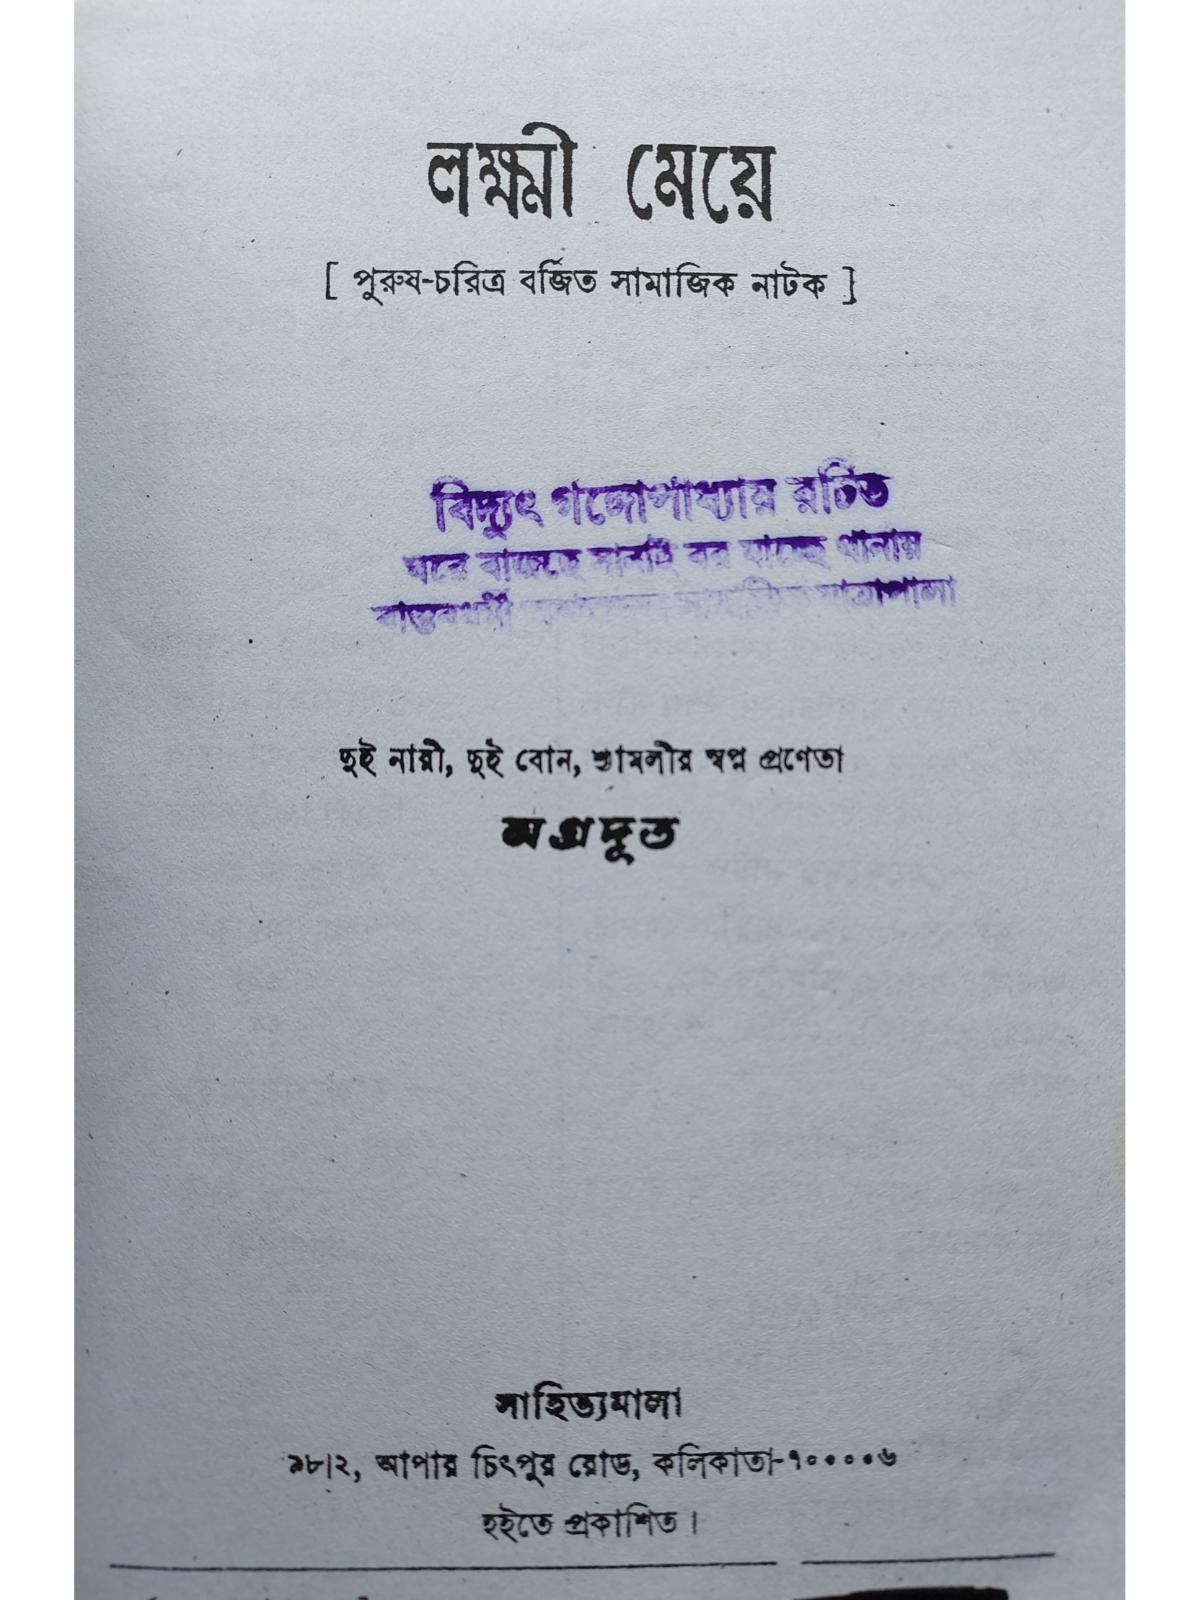 লক্ষ্মী মেয়ে
[ পুরুষ-চরিত্র বর্জিত সামাজিক নাটক ]
বিদ্যুৎ গঙ্গোপাধ্যায় রচিত
ঘরে বাজছে সানাই বর যাচ্ছে থানায়
বাস্তবধর্মী যাত্রাপালা
দুই নারী, দুই বোন, শ্যামলীর স্বপ্ন প্রণেতা
অগ্রদূত
সাহিত্যমালা
৯৮।২, আপার চিৎপুর রোড, কলিকাতা-৭০০০০৬
হইতে প্রকাশিত।